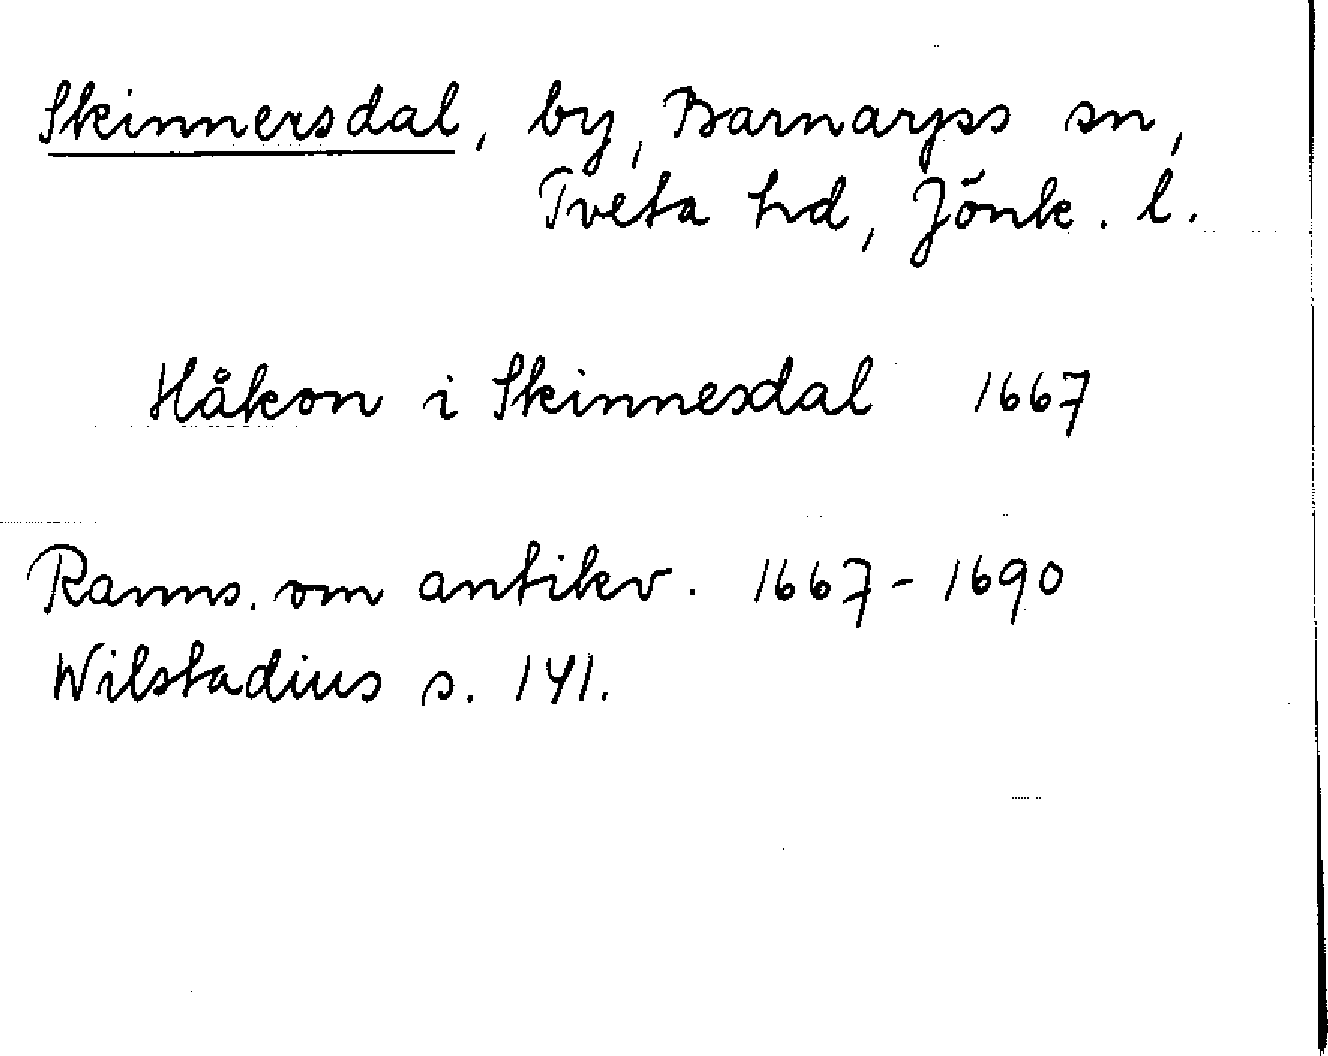 Skinnersdal, by, Barnarps sn,
Tveta hd, Jönk. l.
Håkon i Skinnesdal 1667
Ranns. om antikv. 1667-1690
Wilstadius s. 141.